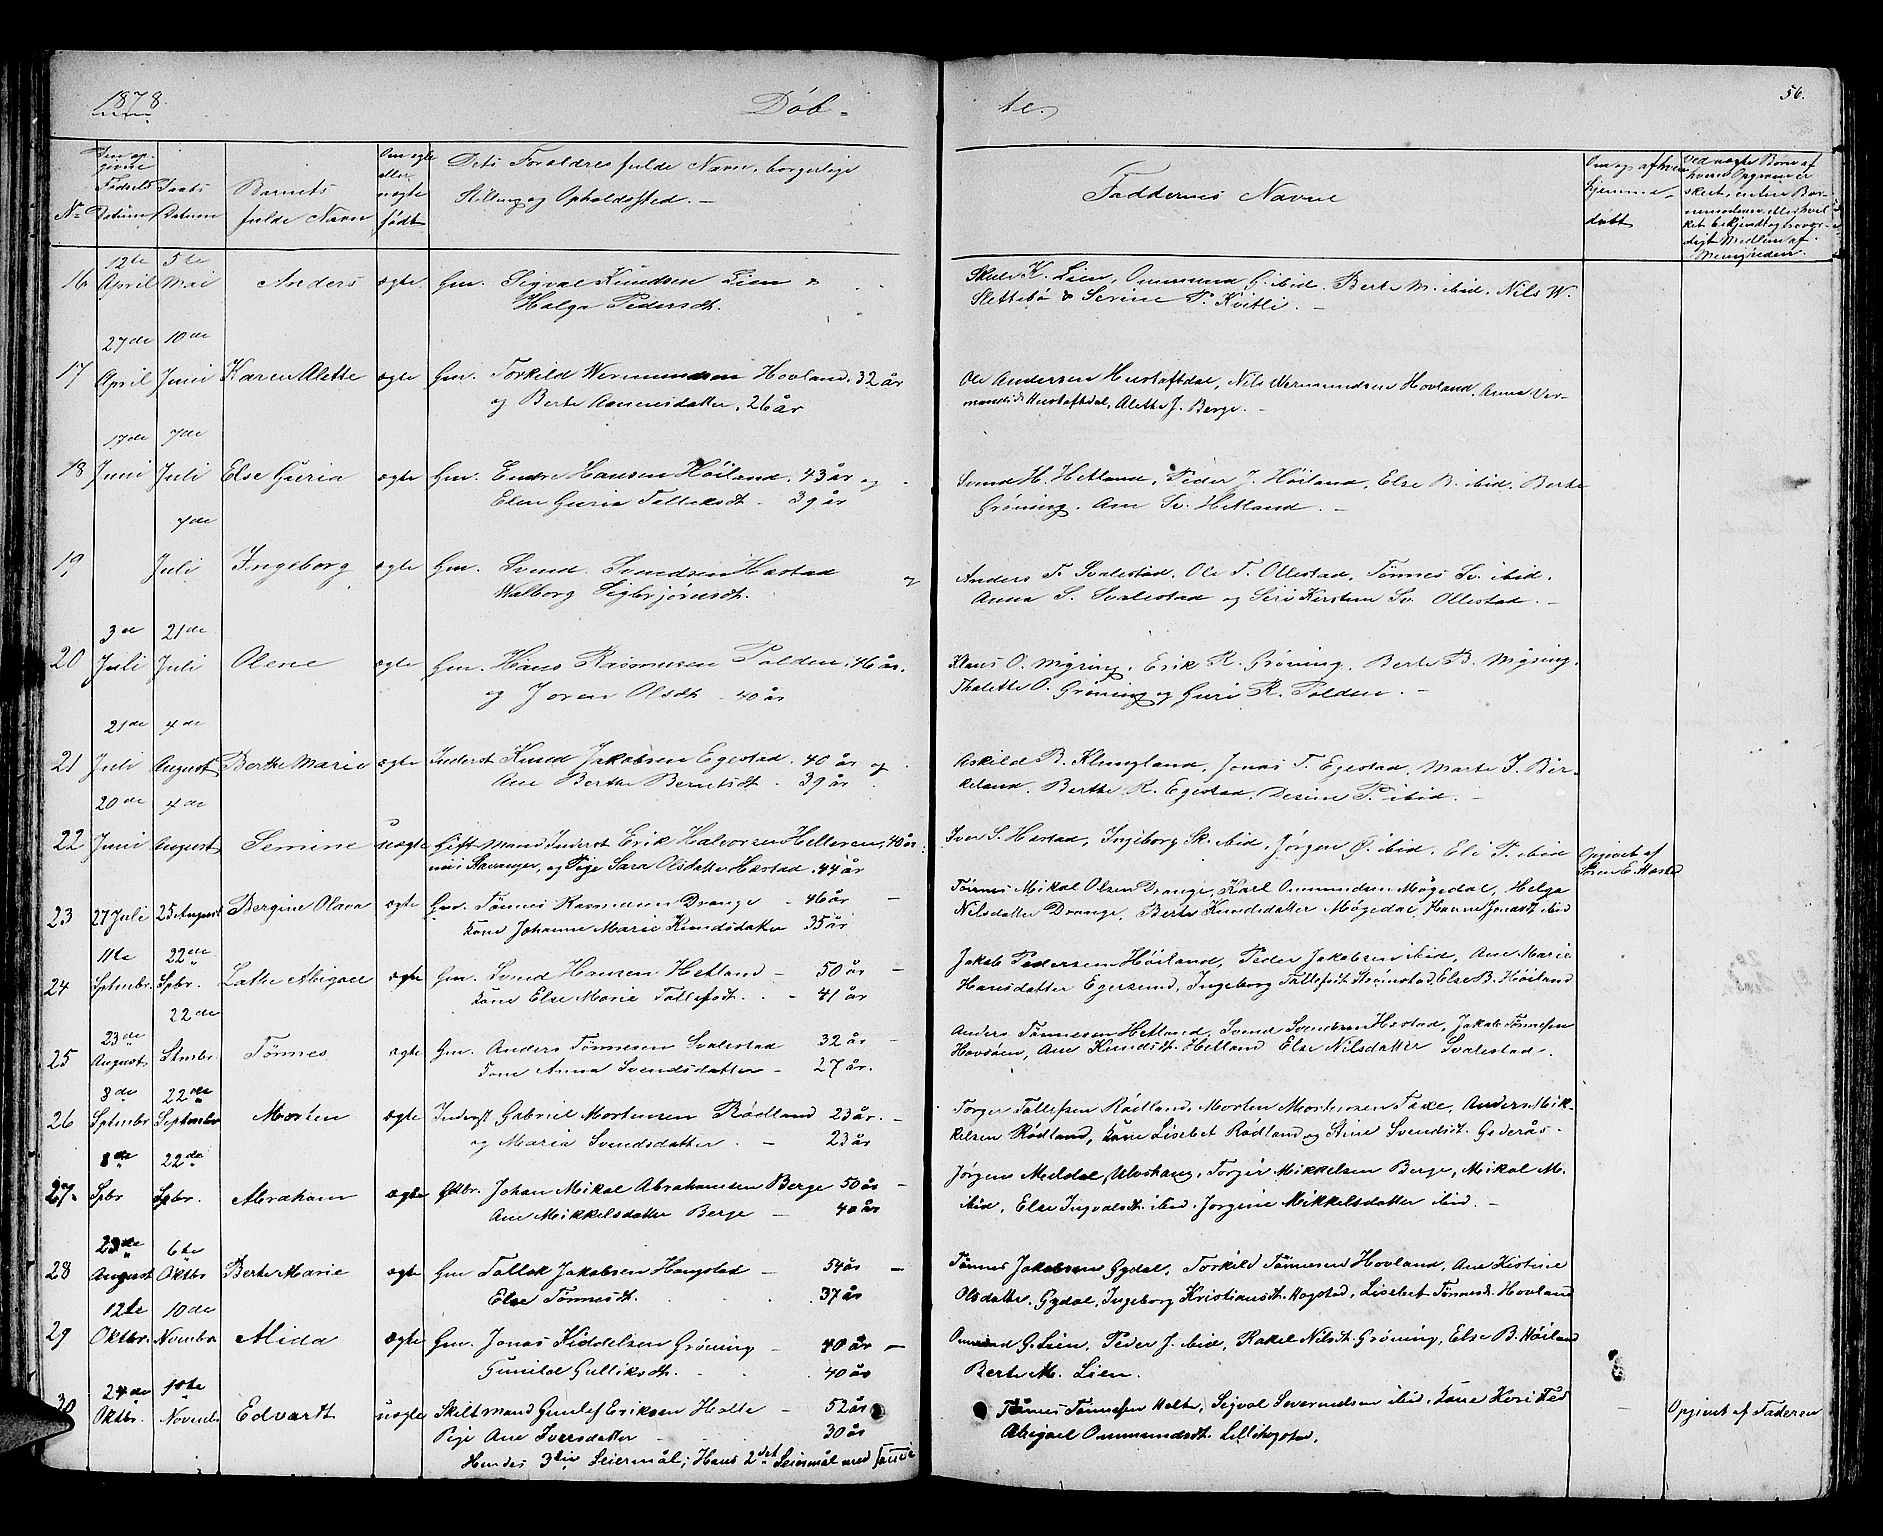 1878.
Døb-
te.
56.
Den op-
givne
Fødsels
Datum
Daabs
Datum
No
Barnets
fulde Navn
Om ægte
eller
uægte
født
Dets Forældres fulde Navn, borgerlige
Stilling og Opholdssted. -
Faddernes Navne
Om og af hvem
hjemme-
døbt
Ved uægte Børn af
hvem Opgaven er
skeet, enten Bar-
nemoderen eller hvil-
ket bekjendt og trovær-
digt Medlem af
Menigheden.
12te 5te
16 April Mai Anders ægte Gm. Sigval Knudsen Lien &
Helga Pedersdt.
Skule K. Lien, Ommund G. ibid. Berte M. ibid. Nils W.
Slettebø & Serine P. Kvitli. -
27de 10de
17 April Juni Karen Alette ægte Gm. Torkild Wermundsen Hovland. 32 år
og Berte Aanensdatter, 26 år
Ole Andersen Hustoftdal, Nils Wermundsen Hovland, Anna Ver-
mundsd. Hustoftdal, Alette J. Berge. -
17de 7de
18 Juni Juli Else Guria ægte Gm. Endre Hansen Høiland, 43 år og
Elen Guria Tolleksdt. - 39 år
Svend H. Hetland, Peder J. Høiland, Else B. ibid, Berte
Grøning. Ane Sv. Hetland. -
7de
19 Juli Ingeborg ægte Gm. Svend Svendsen Hæstad og
Walborg Sigbjørnsdt.
Anders T. Svalestad, Ole T. Ollestad, Tønnes Sv. ibid.
Anna S. Svalestad og Siri Kirstine Sv. Ollestad. -
3de 21de
20 Juli Juli Olene ægte Gm. Hans Rasmusen Polden, 46 år.
og Joren Olsdt. - 40 år
Klaus O. Mysing, Erik R. Grøning, Berte B. Mysing,
Thalette O. Grøning og Guri R. Polden. -
21de 4de
21 Juli August Berthe Marie ægte Inderst Knud Jakobsen Egestad. 40 år og
Ane Berthe Berntsdt - 39 år
Askild B. Klungland, Jonas T. Egestad, Marte I. Bir-
keland, Berthe K. Egestad, Desine P. ibid. -
20de 4de
22 Juni August Semine uægte Gift Mand Inderst Erik Halvorsen Helleren, 40 år
nu i Stavanger, og Pige Sara Olsdatter Hæstad. 44 år
Iver S. Hæstad, Ingeborg Sk. ibid, Jørgen Ø. ibid, Eli P. ibid
Opgivet af
Søren E. Hæstad
23 27 Juli 25 August Bergine Olava ægte Gm. Tønnes Rasmusen Drange - 46 år -
Kone Johanne Marie Knudsdatter 35 år
Tønnes Mikal Olsen Drange, Karl Ommundsen Møgedal, Helga
Nilsdatter Drange, Berte Knudsdatter Møgedal, Hanne Jonasdt. ibid
11te 22de
24 Sptmbr. Spbr. Lathe Abigael ægte Gm. Svend Hansen Hetland - 50 år -
Kone Else Marie Tollefsdt. - 41 år
Jakob Pedersen Høiland, Peder Jakobsen ibid, Ane Marie
Hansdatter Egersund, Ingeborg Tollefsdt. Strømstad, Else B. Høiland
23de 22de
25 August Stmbr. Tønnes ægte Gm. Anders Tønnesen Svalestad 32 år -
Kone Anna Svendsdatter - 27 år.
Anders Tønnesen Hetland, Svend Svendsen Hæstad, Jakob Tønnesen
Hovsøen, Ane Knudsdt. Hetland Else Nilsdatter Svalestad.
8de 22de
26 Sptmbr September Morten ægte Inderst Gabriel Mortensen Rødland 23 år. -
og Maria Svendsdatter. - 23 år
Torger Tollefsen Rødland, Morten Mortensen Faxe, Anders Mik-
kelsen Rødland, Kone Lisebet Rødland og Stine Svendsdt. Gaderås.
8de 22de
27. Spbr Spbr. Abraham ægte Gdbr. Johan Mikal Abrahamsen Berge 50 år -
Ane Mikkelsdatter Berge - 40 år
Jørgen Meldal, Ulvshaug, Torger Mikkelsen Berge, Mikal M.
ibid, Else Ingvalsdt. ibid. Jørgine Mikkelsdatter ibid. -
23de 6te
28 August Oktbr Berte Marie ægte Gm Tollak Jakobsen Haugstad - 54 år -
Else Tønnesdt. 37 år
Tønnes Jakobsen Gydal, Torkild Tønnesen Hovland, Ane Kistine
Olsdatter Gydal, Ingeborg Kristiansdt. Hogstad, Lisebet Tønnesdt. Hovland
12te 10de
29 Oktbr. Novmbr Alida ægte Gm. Jonas Kiddelsen Grøning - 40 år -
Gunild Gulliksdt. - 40 år
Ommund G. Lien, Peder J. ibid, Rakel Nilsdt. Grøning, Else B. Høiland
Berte M. Lien.
24de 10te
30 Oktbr. Novmb. Edvardt uægte Skilt mand Gunlef Eriksen Helle - 52 år
Pige Ane Iversdatter - 30 år
Hendes 3die Leiermål; Hans 2det Leiermål med samme
Tønnes Tønnesen Helle, Sigval Severindsen ibid, Kone Kori
Abigael Ommundsdt. Lillehogstad,
Opgivet af Faderen